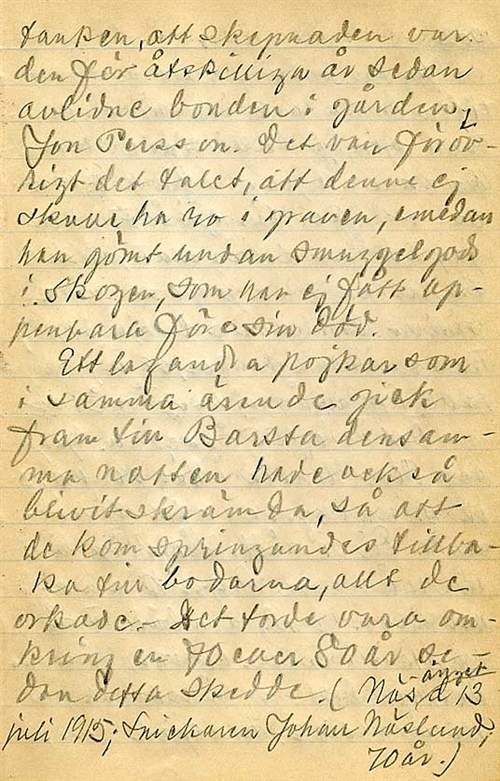 tanken, att skepnaden var
den för åtskilliga år sedan
avlidne bonden i gården,
Jon Persson. Det var föröv-
rigt det talet, att denne ej
skulle ha ro i graven, emedan
han gömt undan smuggelgods
i skogen, som han ej fått up-
penbara före sin död.
Ett lag andra pojkar som
i samma ärende gick
fram till Barsta densam-
ma natten hade också
blivit skrämda, så att
de kom springandes tillba-
ka till bodarna, allt de
orkade. - Det torde vara om-
kring en 70 eller 80 år se-
dan detta skedde. (Näs-
änget d 13
juli 1915; Snickaren Johan Näslund,
70 år.)